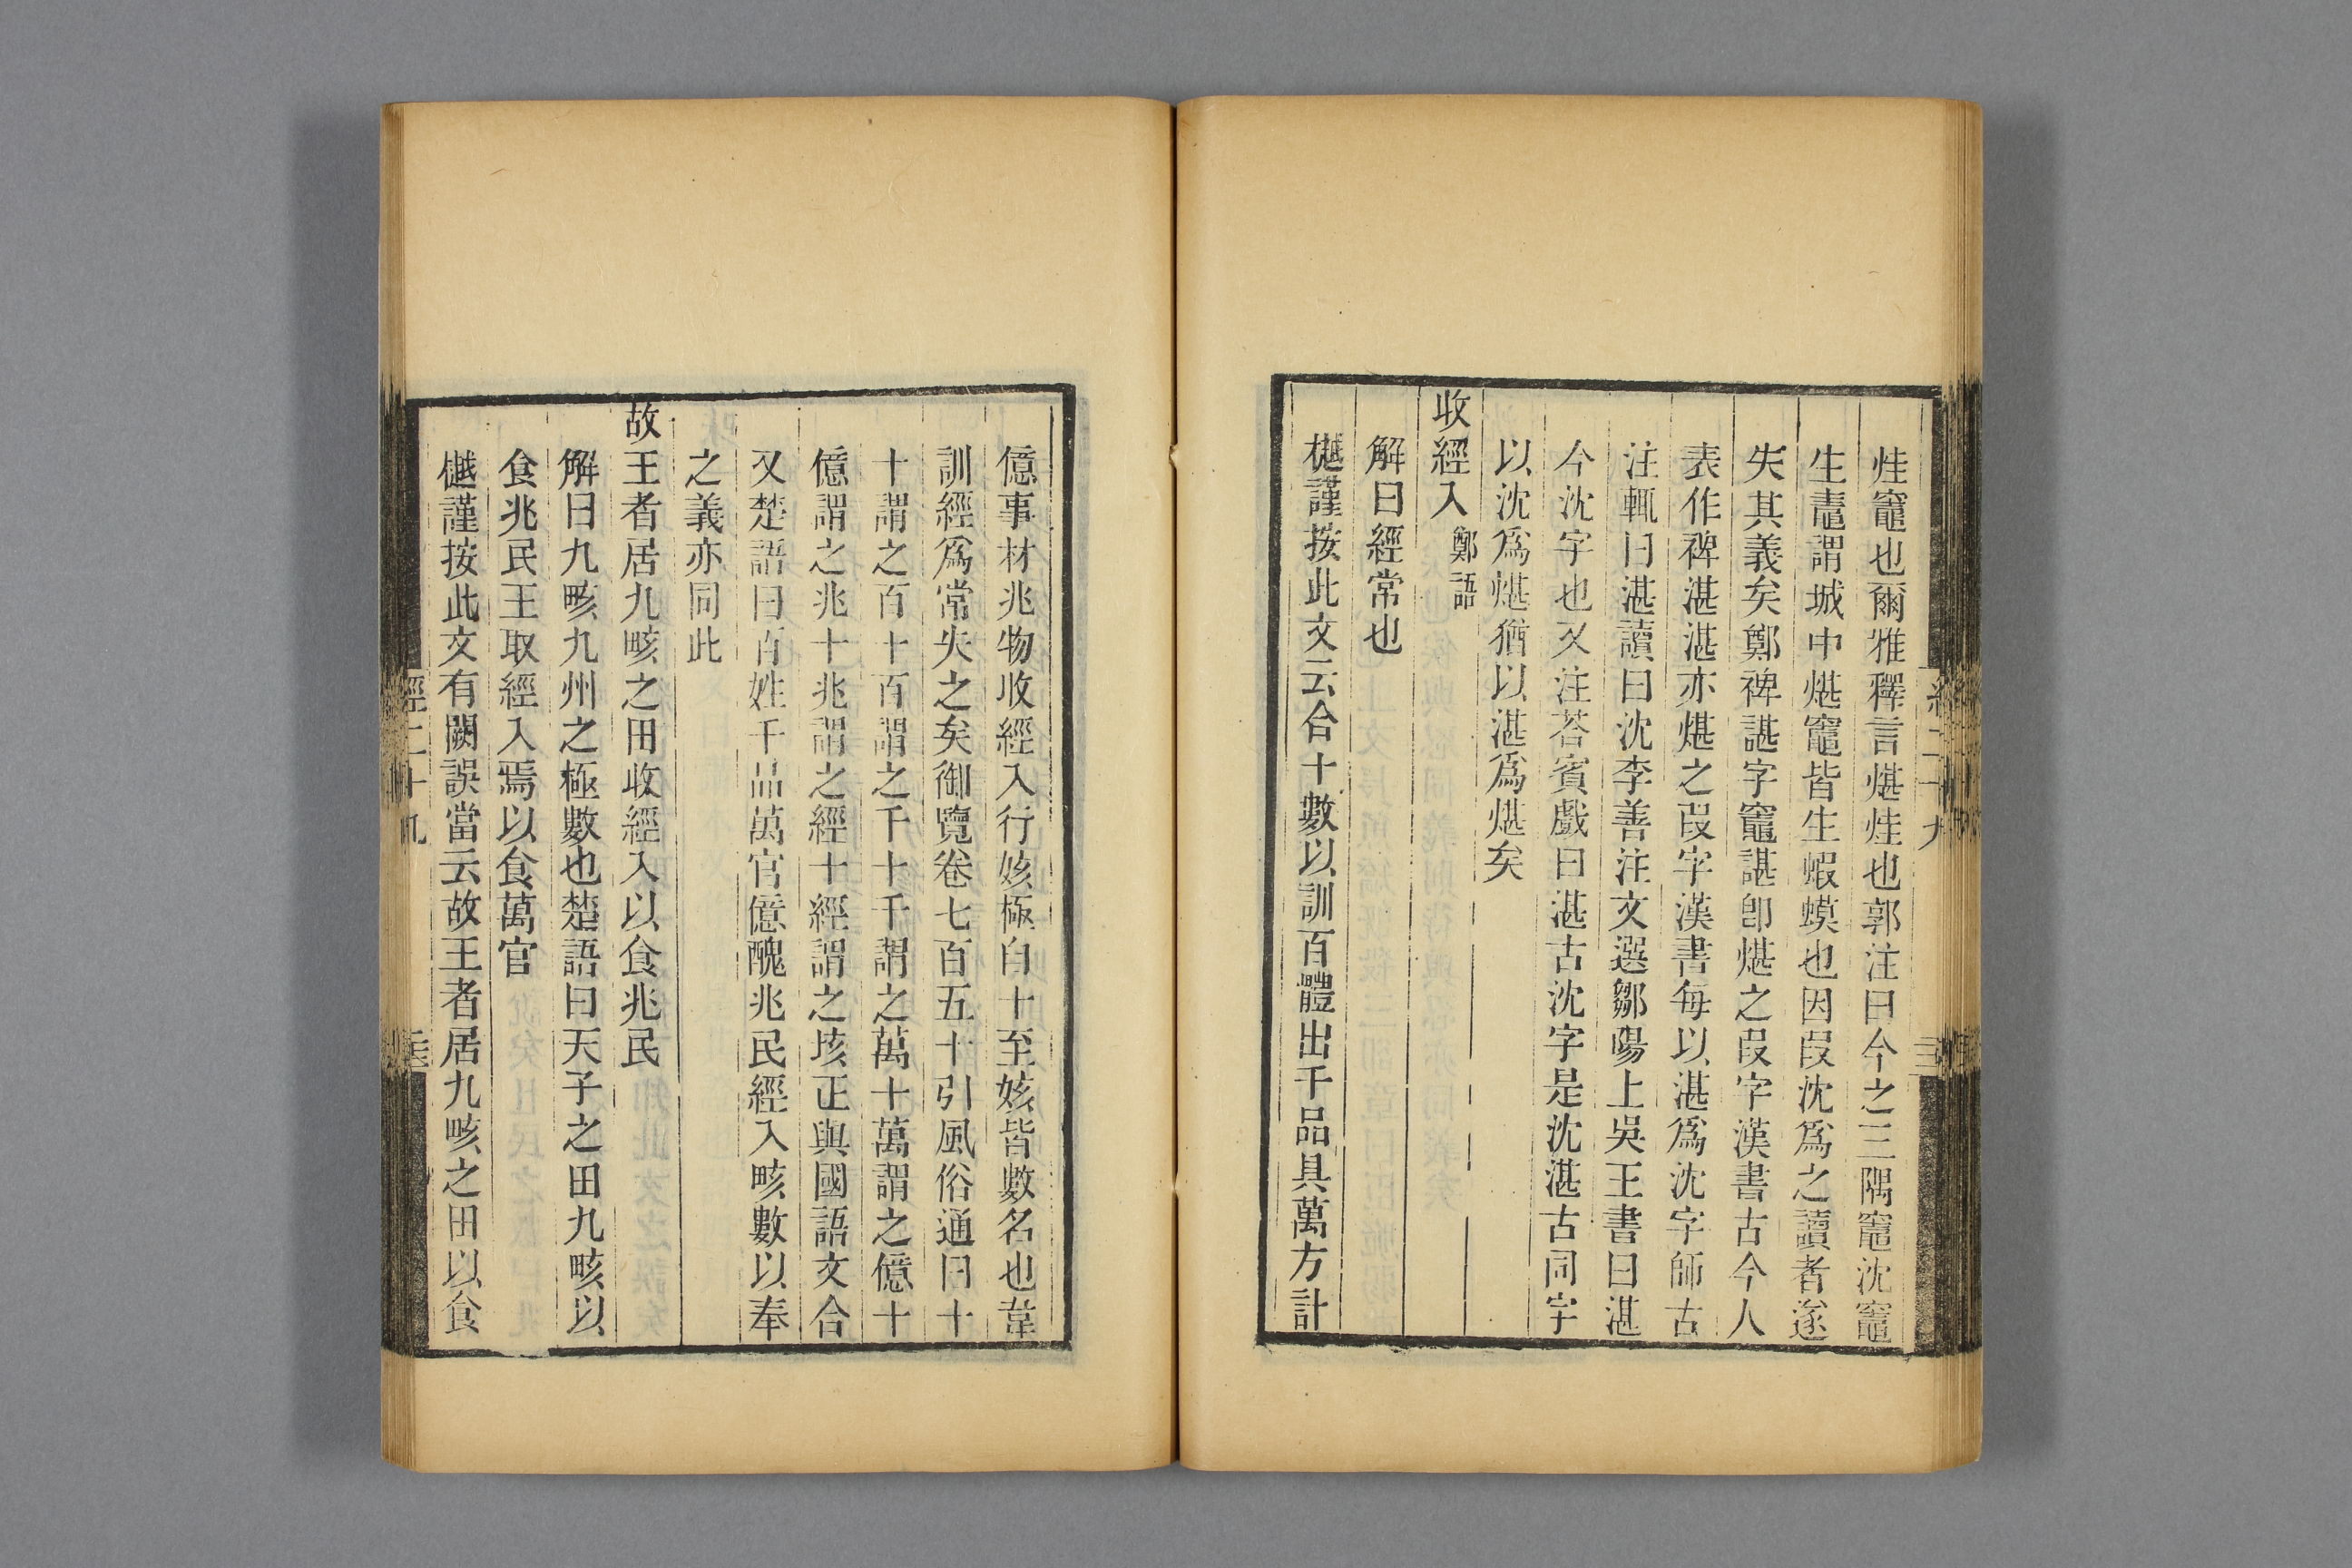 烓竈也爾雅釋言煁烓也郭注曰今之三隅竈沈竈
生鼃謂城中煁竈皆生蝦蟆也因叚沈爲之讀者遂
失其義矣鄭裨諶字竈諶卽煁之叚字漢書古今人
表作裨湛湛亦煁之叚字漢書每以湛爲沈字師古
注輒曰湛讀曰沈李善注文選鄒陽上吳王書曰湛
今沈字也又注荅賓戲曰湛古沈字是沈湛古同字
以沈爲煁猶以湛爲煁矣
收經入 鄭語
解曰經常也
樾謹按此文云合十數以訓百體出千品具萬方計
億事材兆物收經入行姟極自十至姟皆數名也韋
訓經爲常失之矣御覽卷七百五十引風俗通曰十
十謂之百十百謂之千十千謂之萬十萬謂之億十
億謂之兆十兆謂之經十經謂之垓正與國語文合
又楚語曰百姓千品萬官億醜兆民經入畡數以奉
之義亦同此
故王者居九畡之田收經入以食兆民
解曰九畡九州之極數也楚語曰天子之田九畡以
食兆民王取經入焉以食萬官
樾謹按此文有闕誤當云故王者居九畡之田以食
經二十九